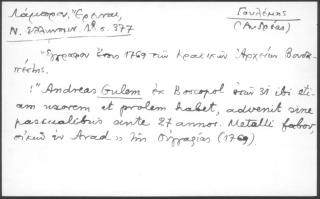 Λάμπρου, Έρευναι,
Ν. Ελληνομν. 18 σ. 377
Γουλέμης
(Ανδρέας)
"Έγγραφον έτους 1769 των κρατικών Αρχείων Βουδα-
πέστης.
:"Andreas Gulem ex Boscopol ετών 31 ibi eti-
am uxorem et prolem habet, advenit sine
pascualibus ante 27 annos. Metalli fabor,
οικών εν Arad» της Ουγγαρίας (1769).